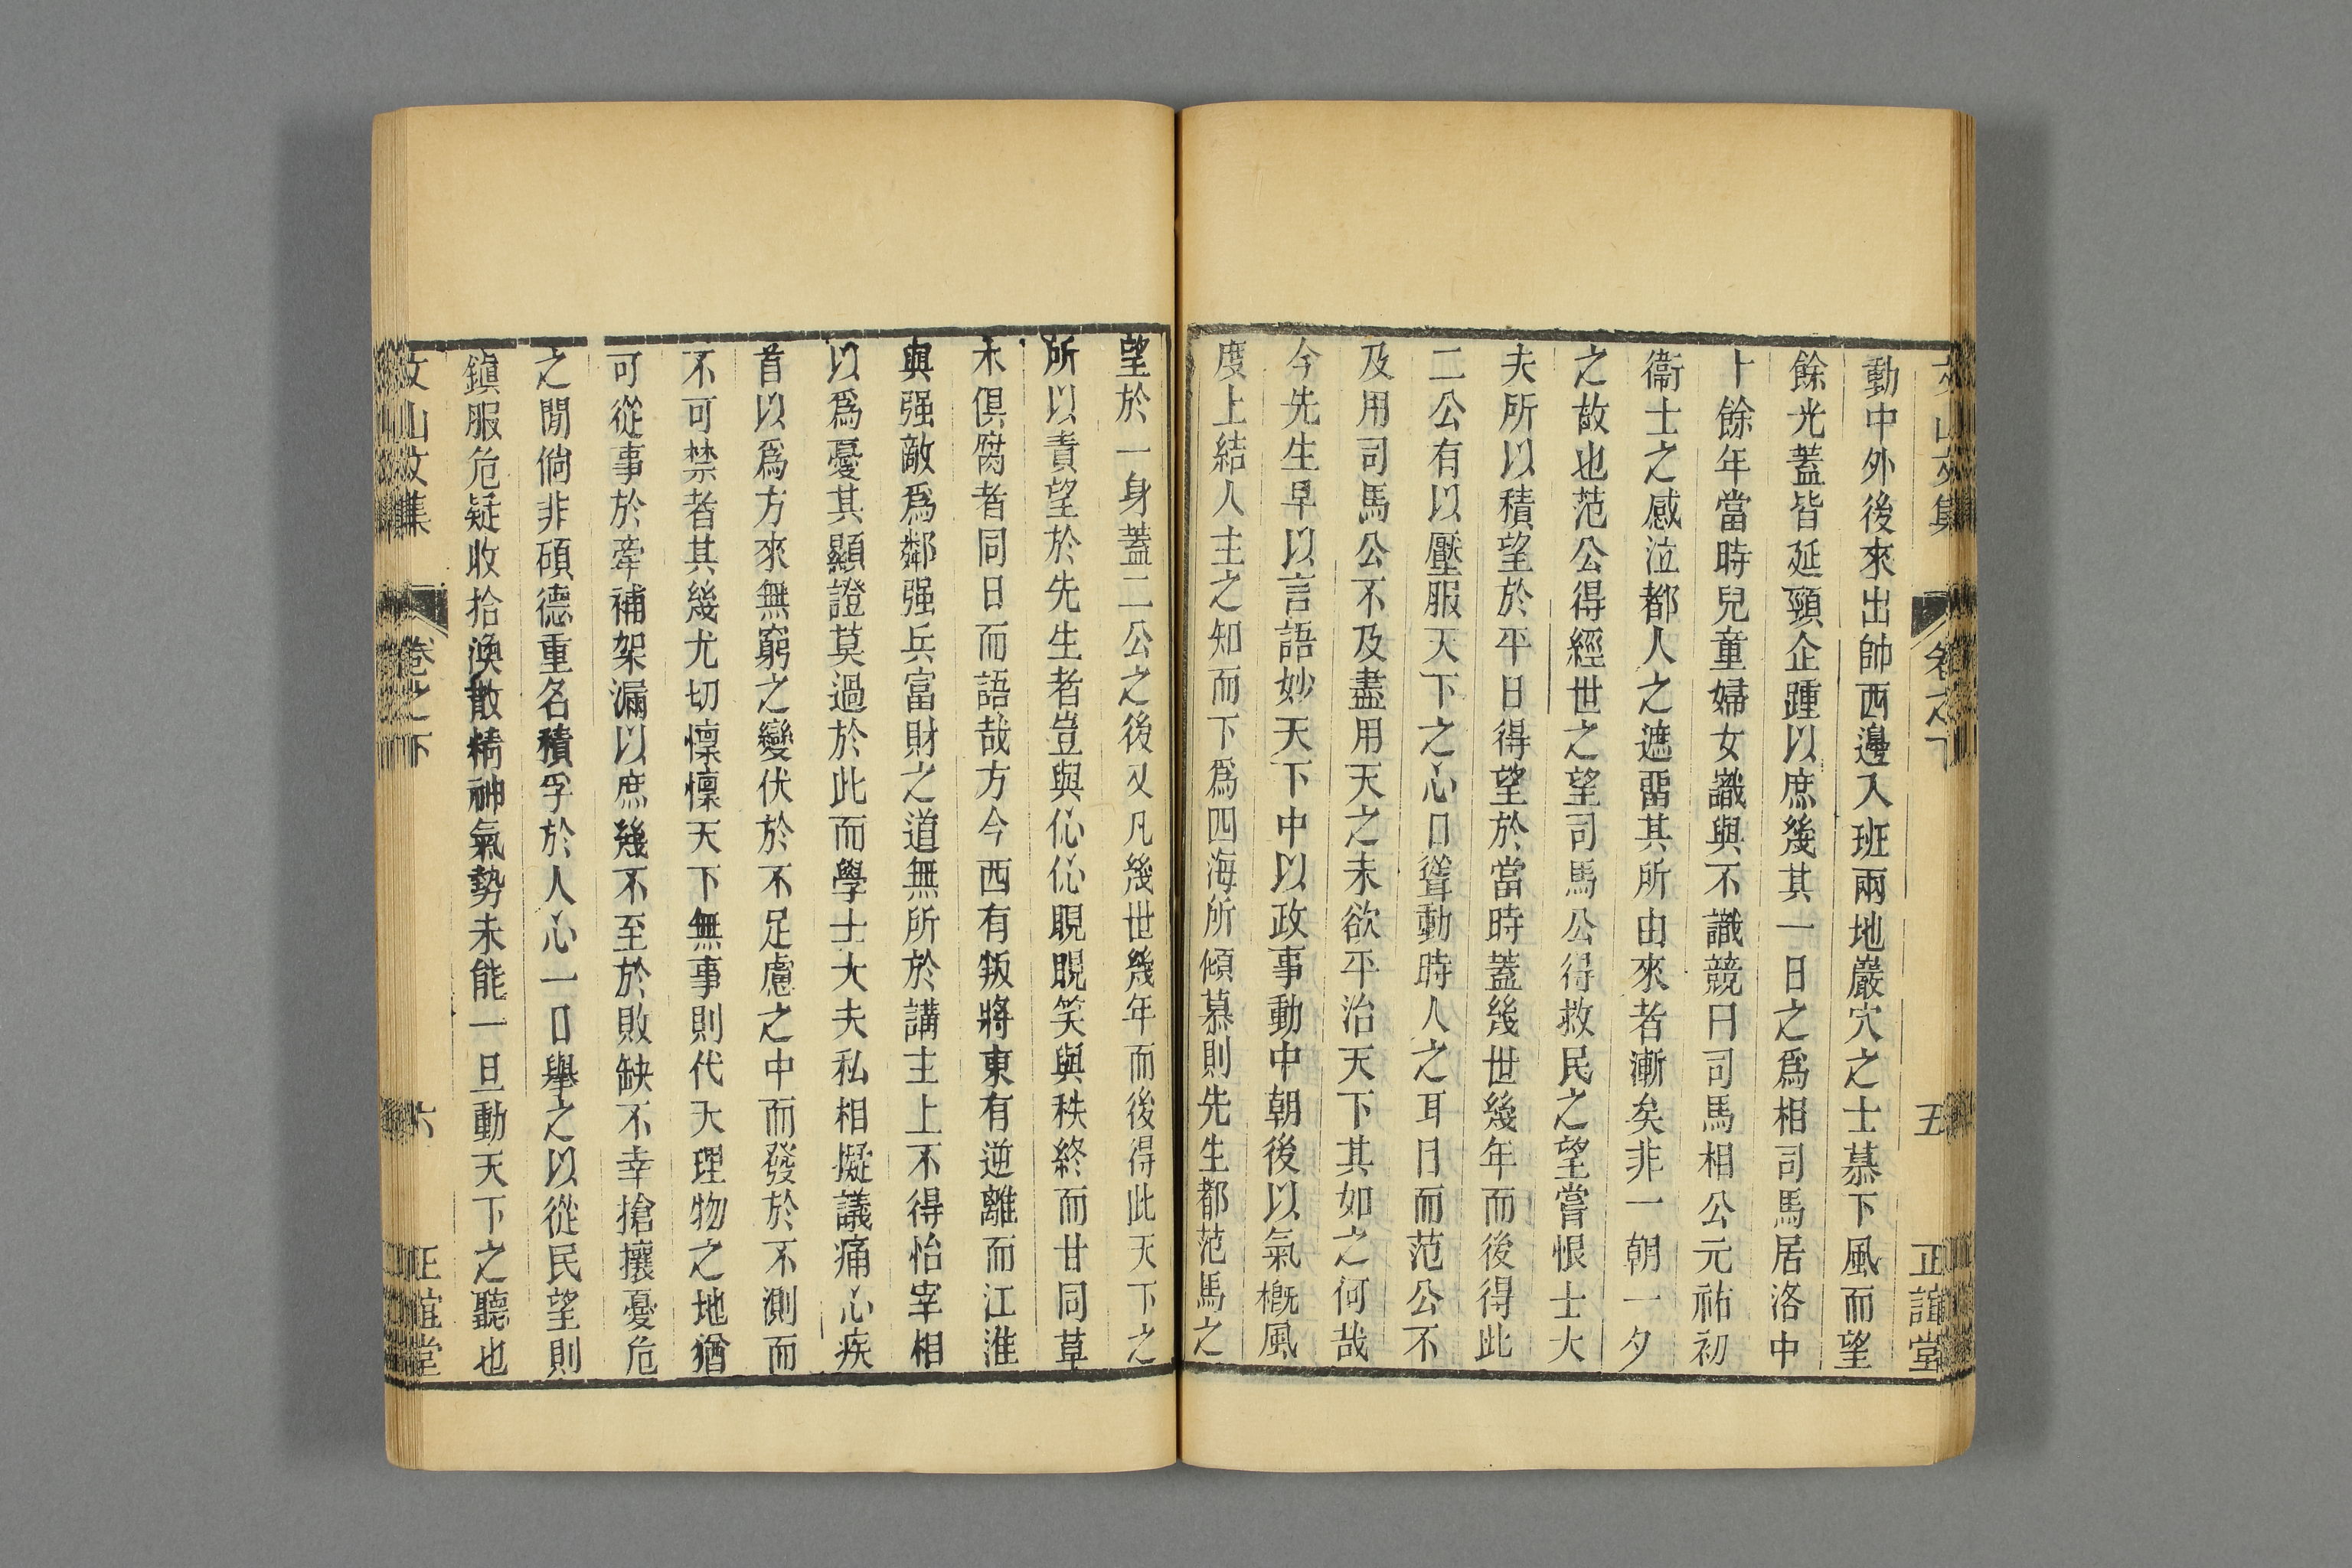 文山文集
卷之下
五
正誼堂
動中外後來出帥西邊入班兩地巖穴之士慕下風而望
餘光蓋皆延頸企踵以庶幾其一日之爲相司馬居洛中
十餘年當時兒童婦女識與不識競曰司馬相公元祐初
衞士之感泣都人之遮畱其所由來者漸矣非一朝一夕
之故也范公得經世之望司馬公得救民之望嘗恨士大
夫所以積望於平日得望於當時蓋幾世幾年而後得此
二公有以壓服天下之心日聳動時人之耳目而范公不
及用司馬公不及盡用天之未欲平治天下其如之何哉
今先生早以言語妙天下中以政事動中朝後以氣槪風
度上結人主之知而下爲四海所傾慕則先生都范馬之
望於一身蓋二公之後又凡幾世幾年而後得此天下之
所以責望於先生者豈與伈伈睍睍笑與秩終而甘同草
木俱腐者同日而語哉方今西有叛將東有逆離而江淮
與强敵爲鄰强兵富財之道無所於講主上不得怡宰相
以爲憂其顯證莫過於此而學士大夫私相擬議痛心疾
首以爲方來無窮之變伏於不足慮之中而發於不測而
不可禁者其幾尤切懔懔天下無事則代天理物之地猶
可從事於牽補架漏以庶幾不至於敗缺不幸搶攘憂危
之閒倘非碩德重名積孚於人心一日舉之以從民望則
鎭服危疑收拾渙散精神氣勢未能一旦動天下之聽也
文山文集
卷之下
六
正誼堂